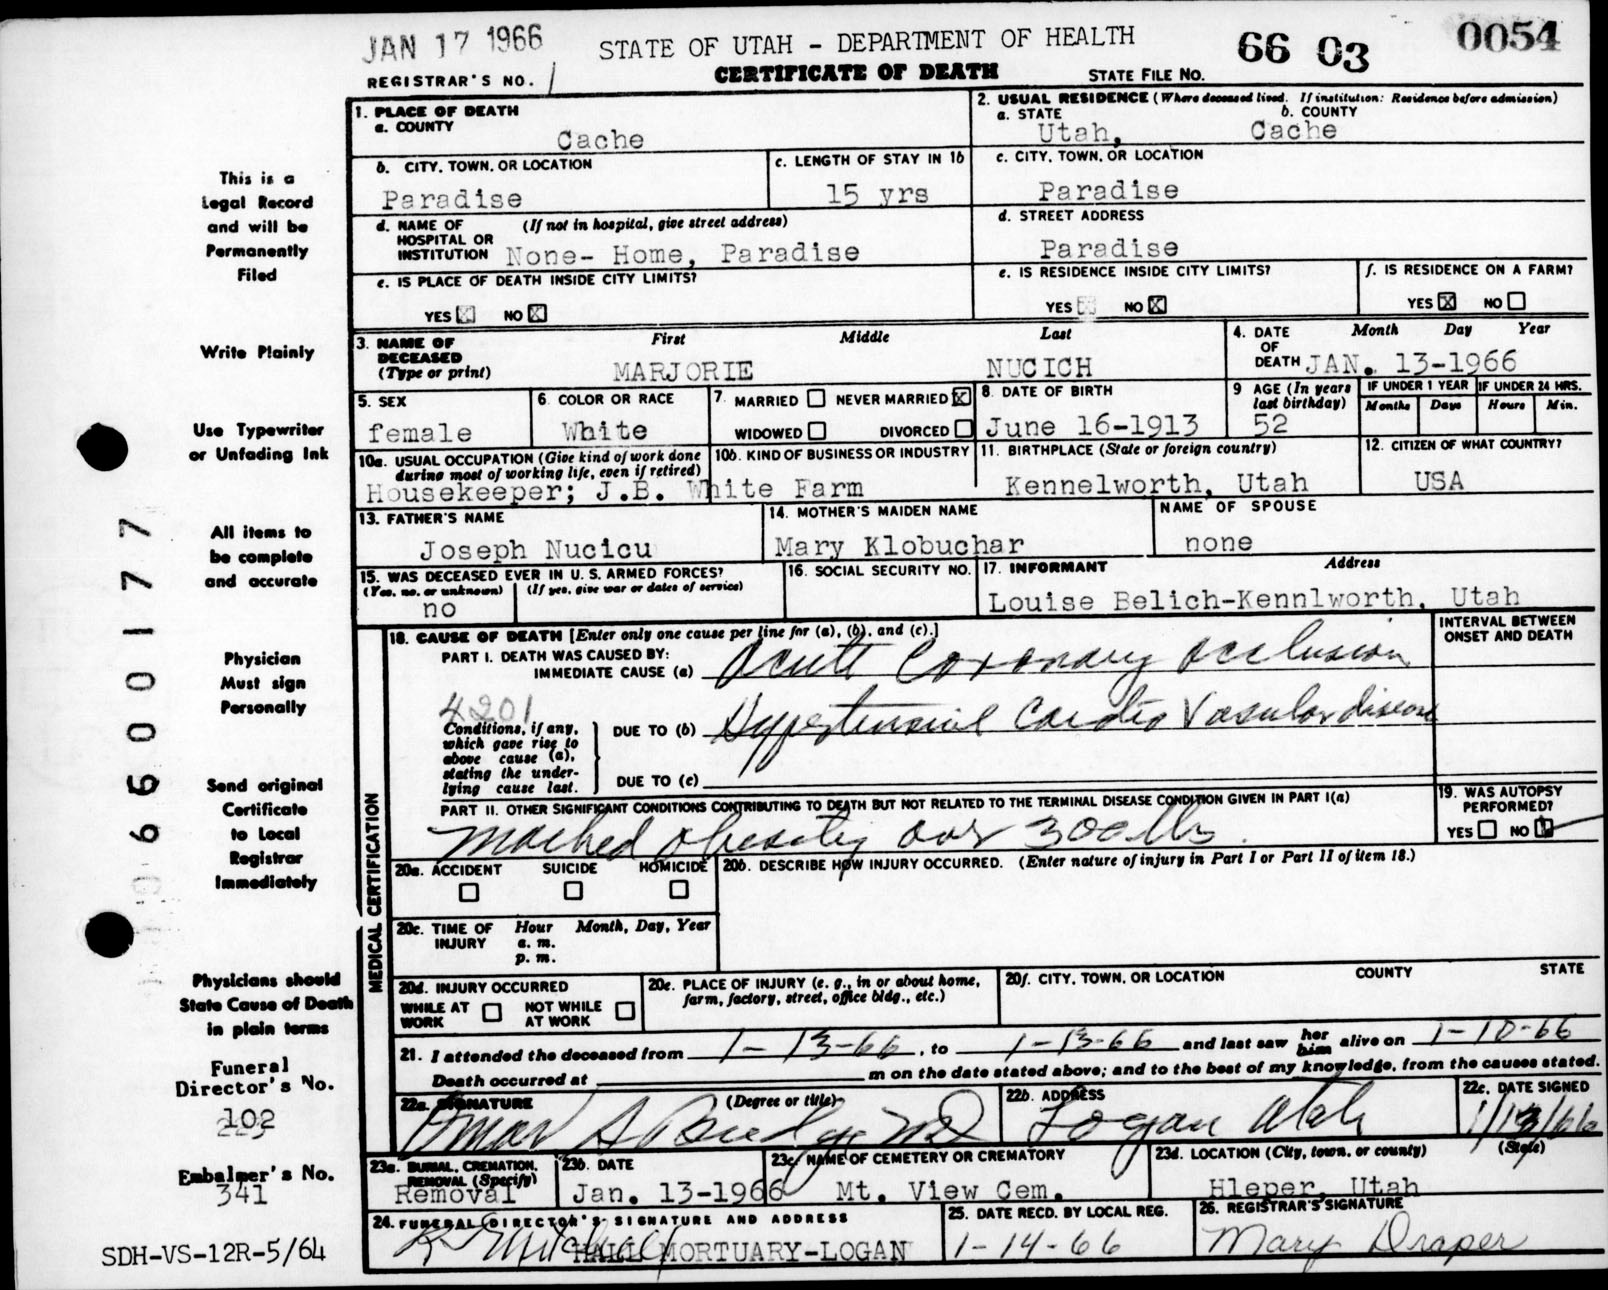 JAN 17 1966
STATE OF UTAH - DEPARTMENT OF HEALTH
66 03 0054
REGISTRAR'S NO. 1
CERTIFICATE OF DEATH
STATE FILE NO.
1. PLACE OF DEATH
a. COUNTY
Cache
2. USUAL RESIDENCE (Where deceased lived. If institution: Residence before admission)
a. STATE b. COUNTY
Utah, Cache
b. CITY, TOWN, OR LOCATION
Paradise
c. LENGTH OF STAY IN 1b
15 yrs
c. CITY, TOWN, OR LOCATION
Paradise
d. NAME OF HOSPITAL OR INSTITUTION (If not in hospital, give street address)
None- Home, Paradise
d. STREET ADDRESS
Paradise
e. IS PLACE OF DEATH INSIDE CITY LIMITS?
YES NO
e. IS RESIDENCE INSIDE CITY LIMITS?
YES NO
f. IS RESIDENCE ON A FARM?
YES NO
3. NAME OF DECEASED (Type or print)
First Middle Last
MARJORIE NUCICH
4. DATE OF DEATH Month Day Year
JAN. 13-1966
5. SEX
female
6. COLOR OR RACE
White
7. MARRIED NEVER MARRIED
WIDOWED DIVORCED
8. DATE OF BIRTH
June 16-1913
9 AGE (In years last birthday)
52
IF UNDER 1 YEAR IF UNDER 24 HRS.
Months Days Hours Min.
10a. USUAL OCCUPATION (Give kind of work done during most of working life, even if retired)
10b. KIND OF BUSINESS OR INDUSTRY
Housekeeper; J.B. White Farm
11. BIRTHPLACE (State or foreign country)
Kennelworth, Utah
12. CITIZEN OF WHAT COUNTRY?
USA
13. FATHER'S NAME
Joseph Nucicu
14. MOTHER'S MAIDEN NAME
Mary Klobuchar
NAME OF SPOUSE
none
15. WAS DECEASED EVER IN U. S. ARMED FORCES?
(Yes, no, or unknown) (If yes, give war or dates of service)
no
16. SOCIAL SECURITY NO.
17. INFORMANT Address
Louise Belich-Kennlworth, Utah
MEDICAL CERTIFICATION
18. CAUSE OF DEATH [Enter only one cause per line for (a), (b), and (c).]
INTERVAL BETWEEN ONSET AND DEATH
PART I. DEATH WAS CAUSED BY:
IMMEDIATE CAUSE (a) Acute Coronary Occlusion
4201
Conditions, if any, which gave rise to above cause (a), stating the underlying cause last.
DUE TO (b) Hypertensive Cardio Vascular disease
DUE TO (c)
PART II. OTHER SIGNIFICANT CONDITIONS CONTRIBUTING TO DEATH BUT NOT RELATED TO THE TERMINAL DISEASE CONDITION GIVEN IN PART I(a)
Marked obesity over 300 lbs.
19. WAS AUTOPSY PERFORMED?
YES NO
20a. ACCIDENT SUICIDE HOMICIDE
20b. DESCRIBE HOW INJURY OCCURRED. (Enter nature of injury in Part I or Part II of item 18.)
20c. TIME OF INJURY Hour Month, Day, Year
a. m.
p. m.
20d. INJURY OCCURRED
WHILE AT WORK NOT WHILE AT WORK
20e. PLACE OF INJURY (e. g., in or about home, farm, factory, street, office bldg., etc.)
20f. CITY, TOWN, OR LOCATION COUNTY STATE
21. I attended the deceased from 1-13-66, to 1-13-66 and last saw her him alive on 1-10-66
Death occurred at m on the date stated above; and to the best of my knowledge, from the causes stated.
22a. SIGNATURE (Degree or title)
Omar S Budge MD
22b. ADDRESS
Logan Utah
22c. DATE SIGNED
1/13/66
23a. BURIAL, CREMATION, REMOVAL (Specify)
Removal
23b. DATE
Jan. 13-1966
23c. NAME OF CEMETERY OR CREMATORY
Mt. View Cem.
23d. LOCATION (City, town, or county) (State)
Hleper, Utah
24. FUNERAL DIRECTOR'S SIGNATURE AND ADDRESS
HALL MORTUARY-LOGAN
25. DATE RECD. BY LOCAL REG.
1-14-66
26. REGISTRAR'S SIGNATURE
Mary Draper
This is a
Legal Record
and will be
Permanently
Filed
Write Plainly
Use Typewriter
or Unfading Ink
All items to
be complete
and accurate
Physician
Must sign
Personally
Send original
Certificate
to Local
Registrar
Immediately
Physicians should
State Cause of Death
in plain terms
Funeral
Director's No.
102
Embalmer's No.
341
SDH-VS-12R-5/64